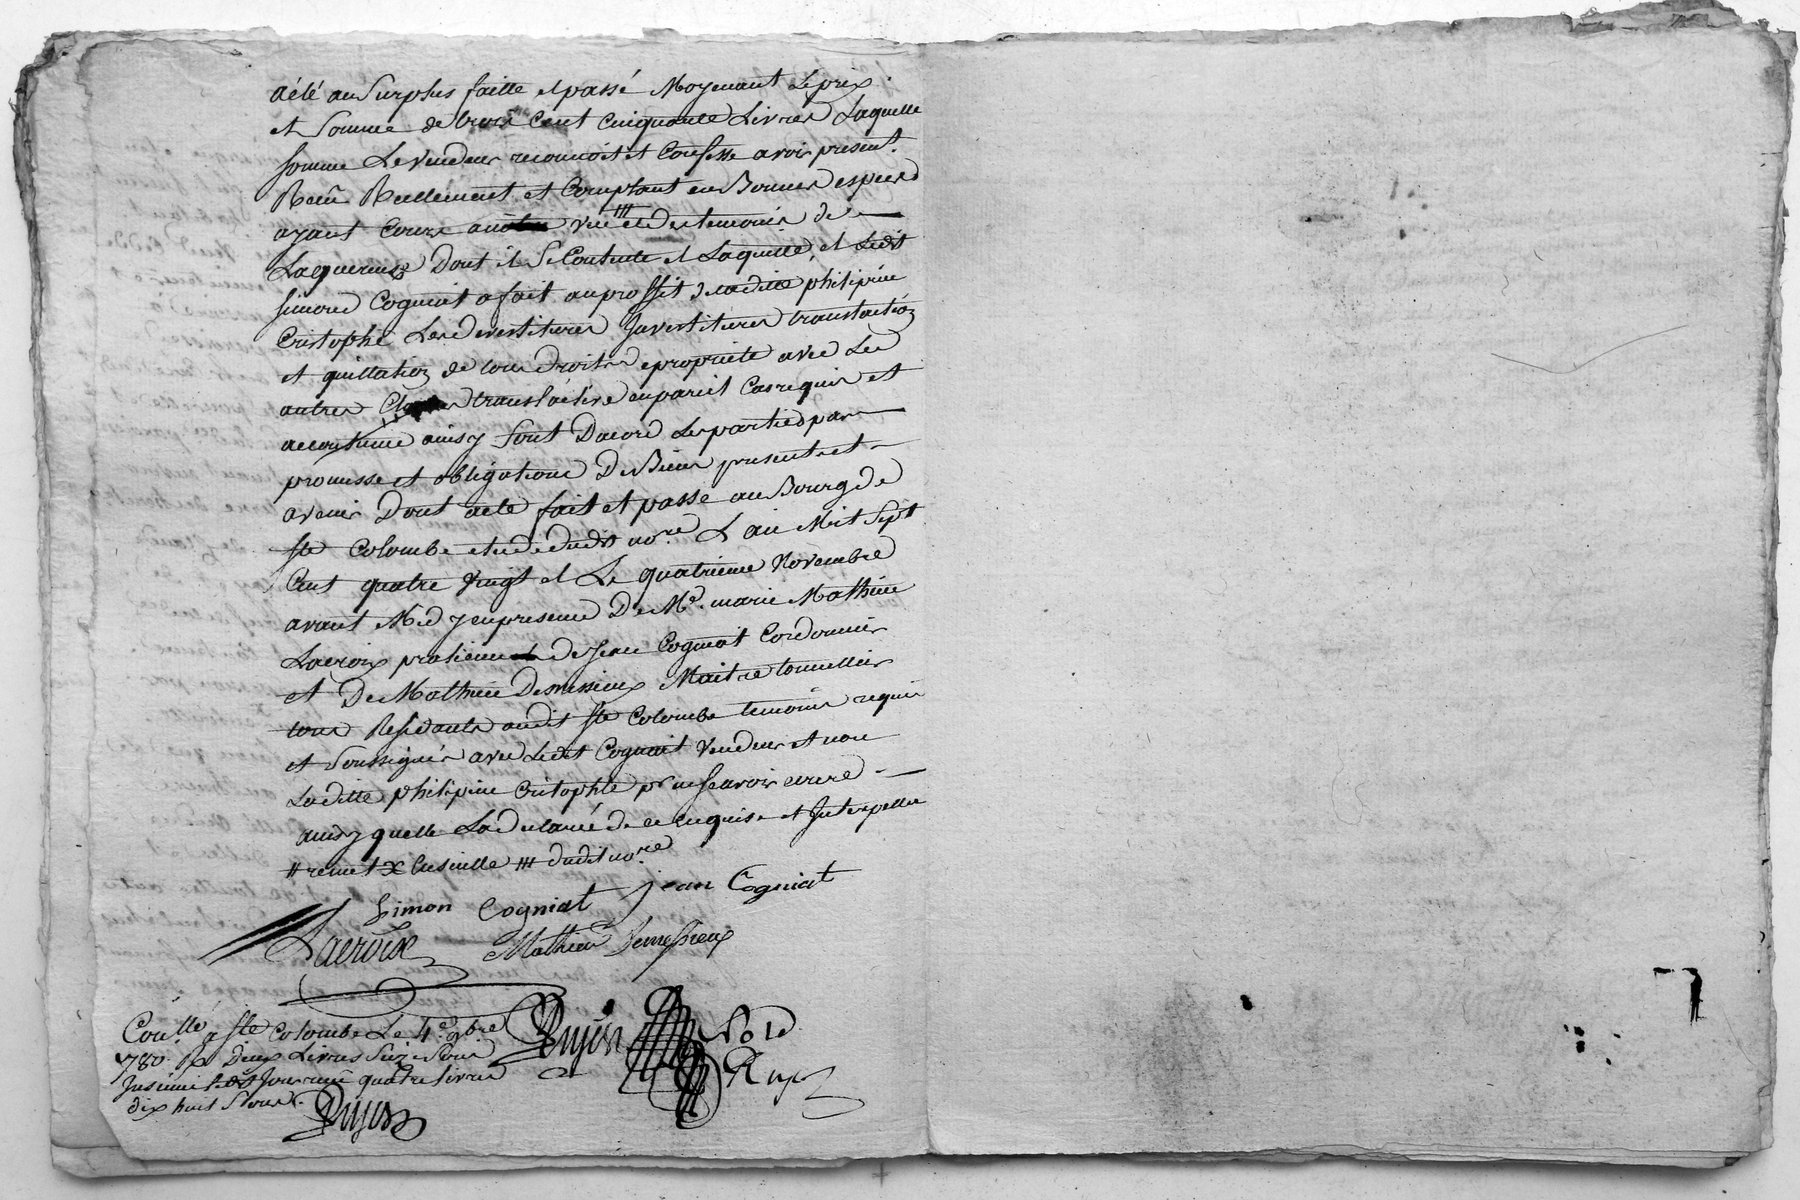 a été au Surplus faitte et passé Moyenant Le prix
et Somme de trois Cent Cinquante Livres Laquelle
somme Le vendeur reconnoit et Confesse avoir present.
Recû Reellement et Comptant en Bonnes especes
ayant Cours a veüe et des temoins de
Dont il Se Contente et Laquitte, et Ledit
simond Cogniat a fait au proffit de laditte philipine
Cristophle Les devestitures Investitures translation
et quittation de tous droits de propriete avec Les
autres Clauses translative en pareil Cas requis et
accoutumé ainsy Sont Dacord Les parties par
promisse et obligations De Biens presents et
avenir Dont acte fait et passé au Bourg de
Ste Colombe etude dudit nore L an Mil Sept
Cent quatre Vingt et Le quatrieme Novembre
avant Midy en presence De Me. marie Mathieu
Lacroix praticien de Jean Cogniat Cordonnier
et De Mathieu Desmessieux Maitre tonnellier
tous Residants audit Ste Colombe temoins requis
et Soussignés avec Ledit Cogniat Vendeur et non
Laditte philipine Cristophle pr ne scavoir ecrire
ainsy quelle La declaré de ce enquise et Interpellée
# remet X ## dudit nore
Simon Cogniat jean Cogniat
Lacroix Mathieu Demessieux
Coullé a Ste Colombe Le 4e 9bre
1780. Rx deux Livres Six Sous
Insinué Ledit Jour quatre livres
dix huit Sous.